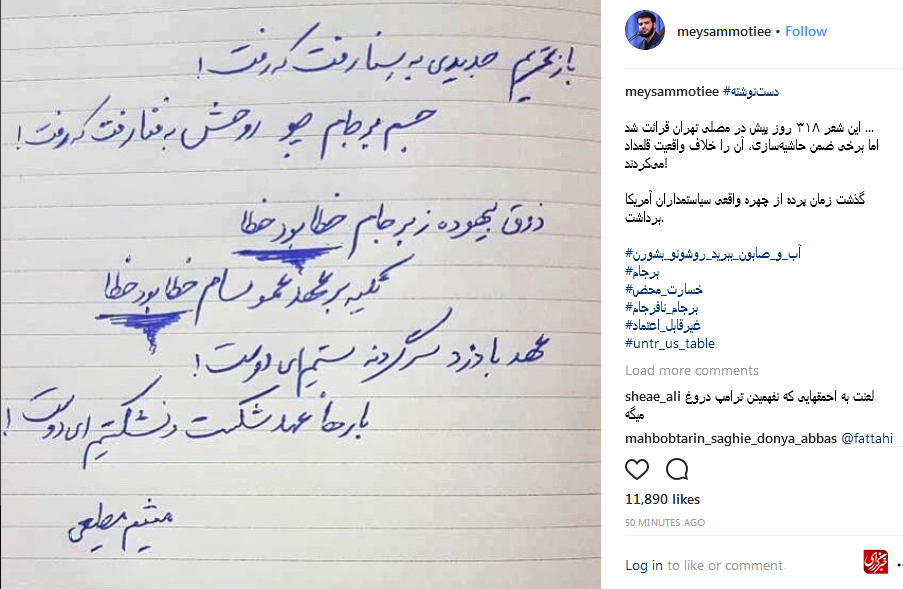 باز تحریم جدیدی به سنا رفت که رفت!
جسم برجام چو روحش به فنا رفت که رفت!
ذوق بیهوده ز برجام خطا بود خطا
تکیه بر عهد عمو سام خطا بود خطا
عهد با دزد سر گردنه بستیم ای دوست!
بارها عهد شکست و نشکستیم ای دوست!
میثم مطیعی
meysammotiee • Follow
meysammotiee #دست‌نوشته
... این شعر ۳۱۸ روز پیش در مصلی تهران قرائت شد
اما برخی ضمن حاشیه‌سازی، آن را خلاف واقعیت قلمداد
می‌کردند!
گذشت زمان پرده از چهره واقعی سیاستمداران آمریکا
برداشت.
#آب_و_صابون_ببرید_روشونو_بشورن
#برجام
#خسارت_محض
#برجام_نافرجام
#غیرقابل_اعتماد
#untr_us_table
Load more comments
sheae_ali لعنت به احمقهایی که نفهمیدن ترامپ دروغ
میگه
mahbobtarin_saghie_donya_abbas @fattahi
11,890 likes
50 MINUTES AGO
Log in to like or comment.